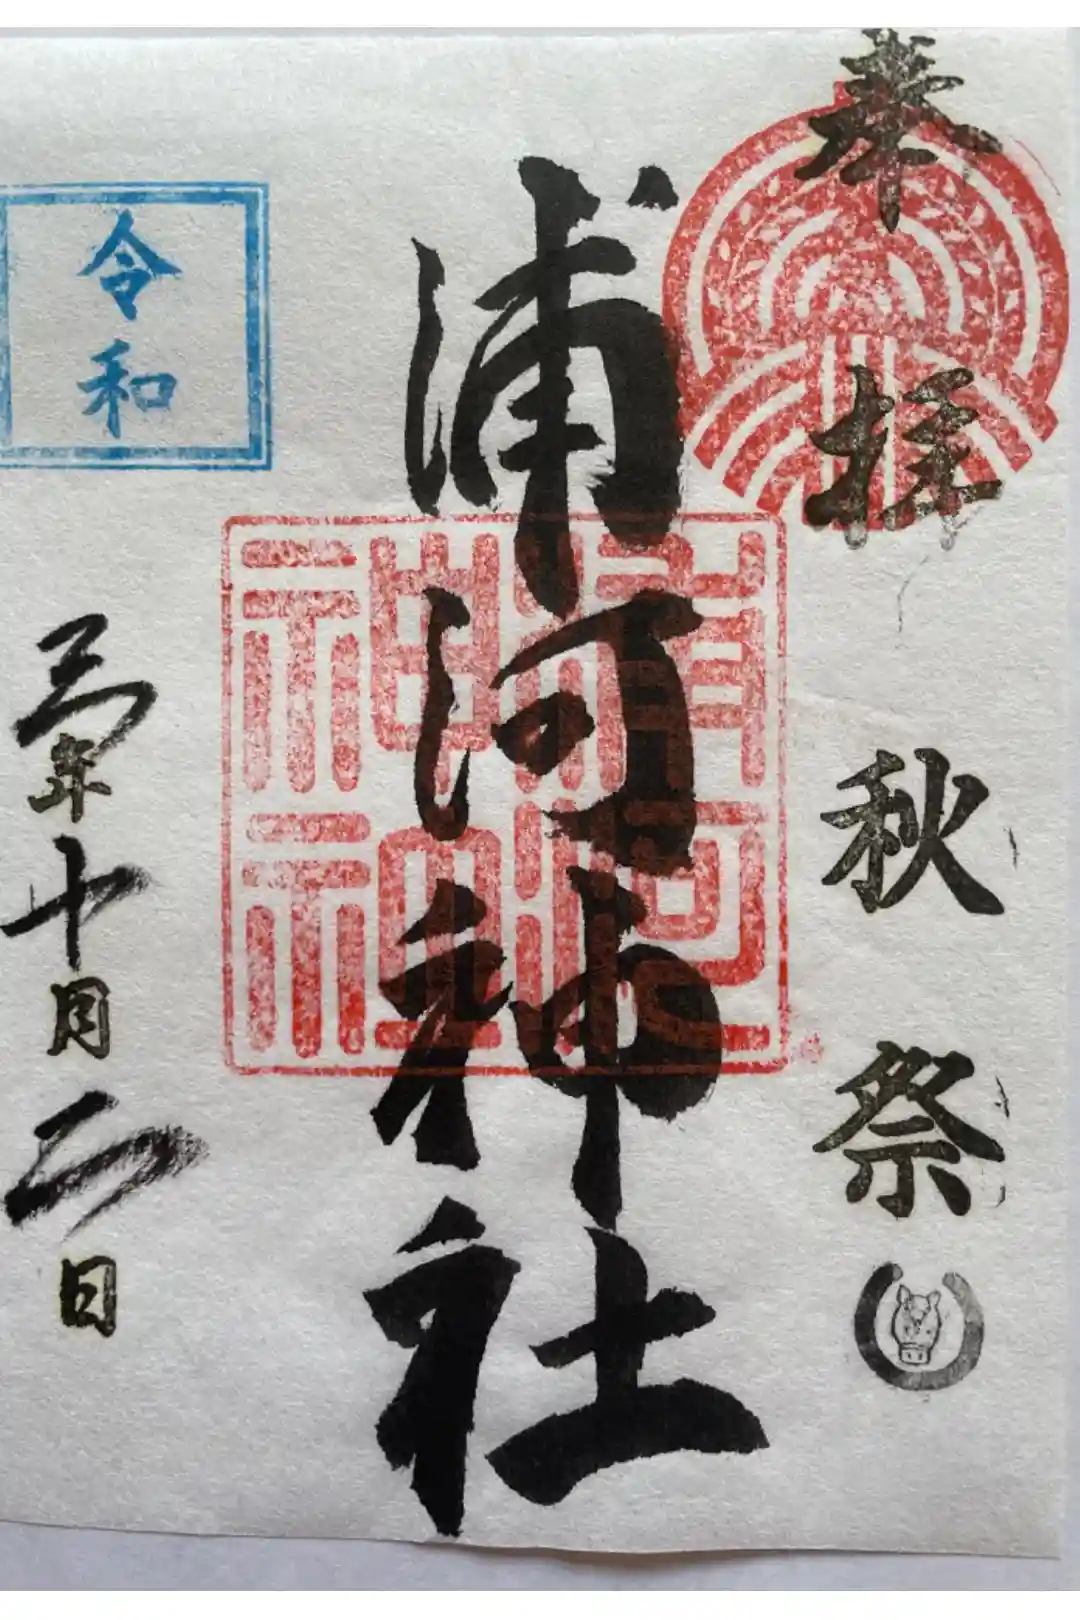 奉拝
秋祭
浦河神社
浦河
神社
令和
三年十月二日